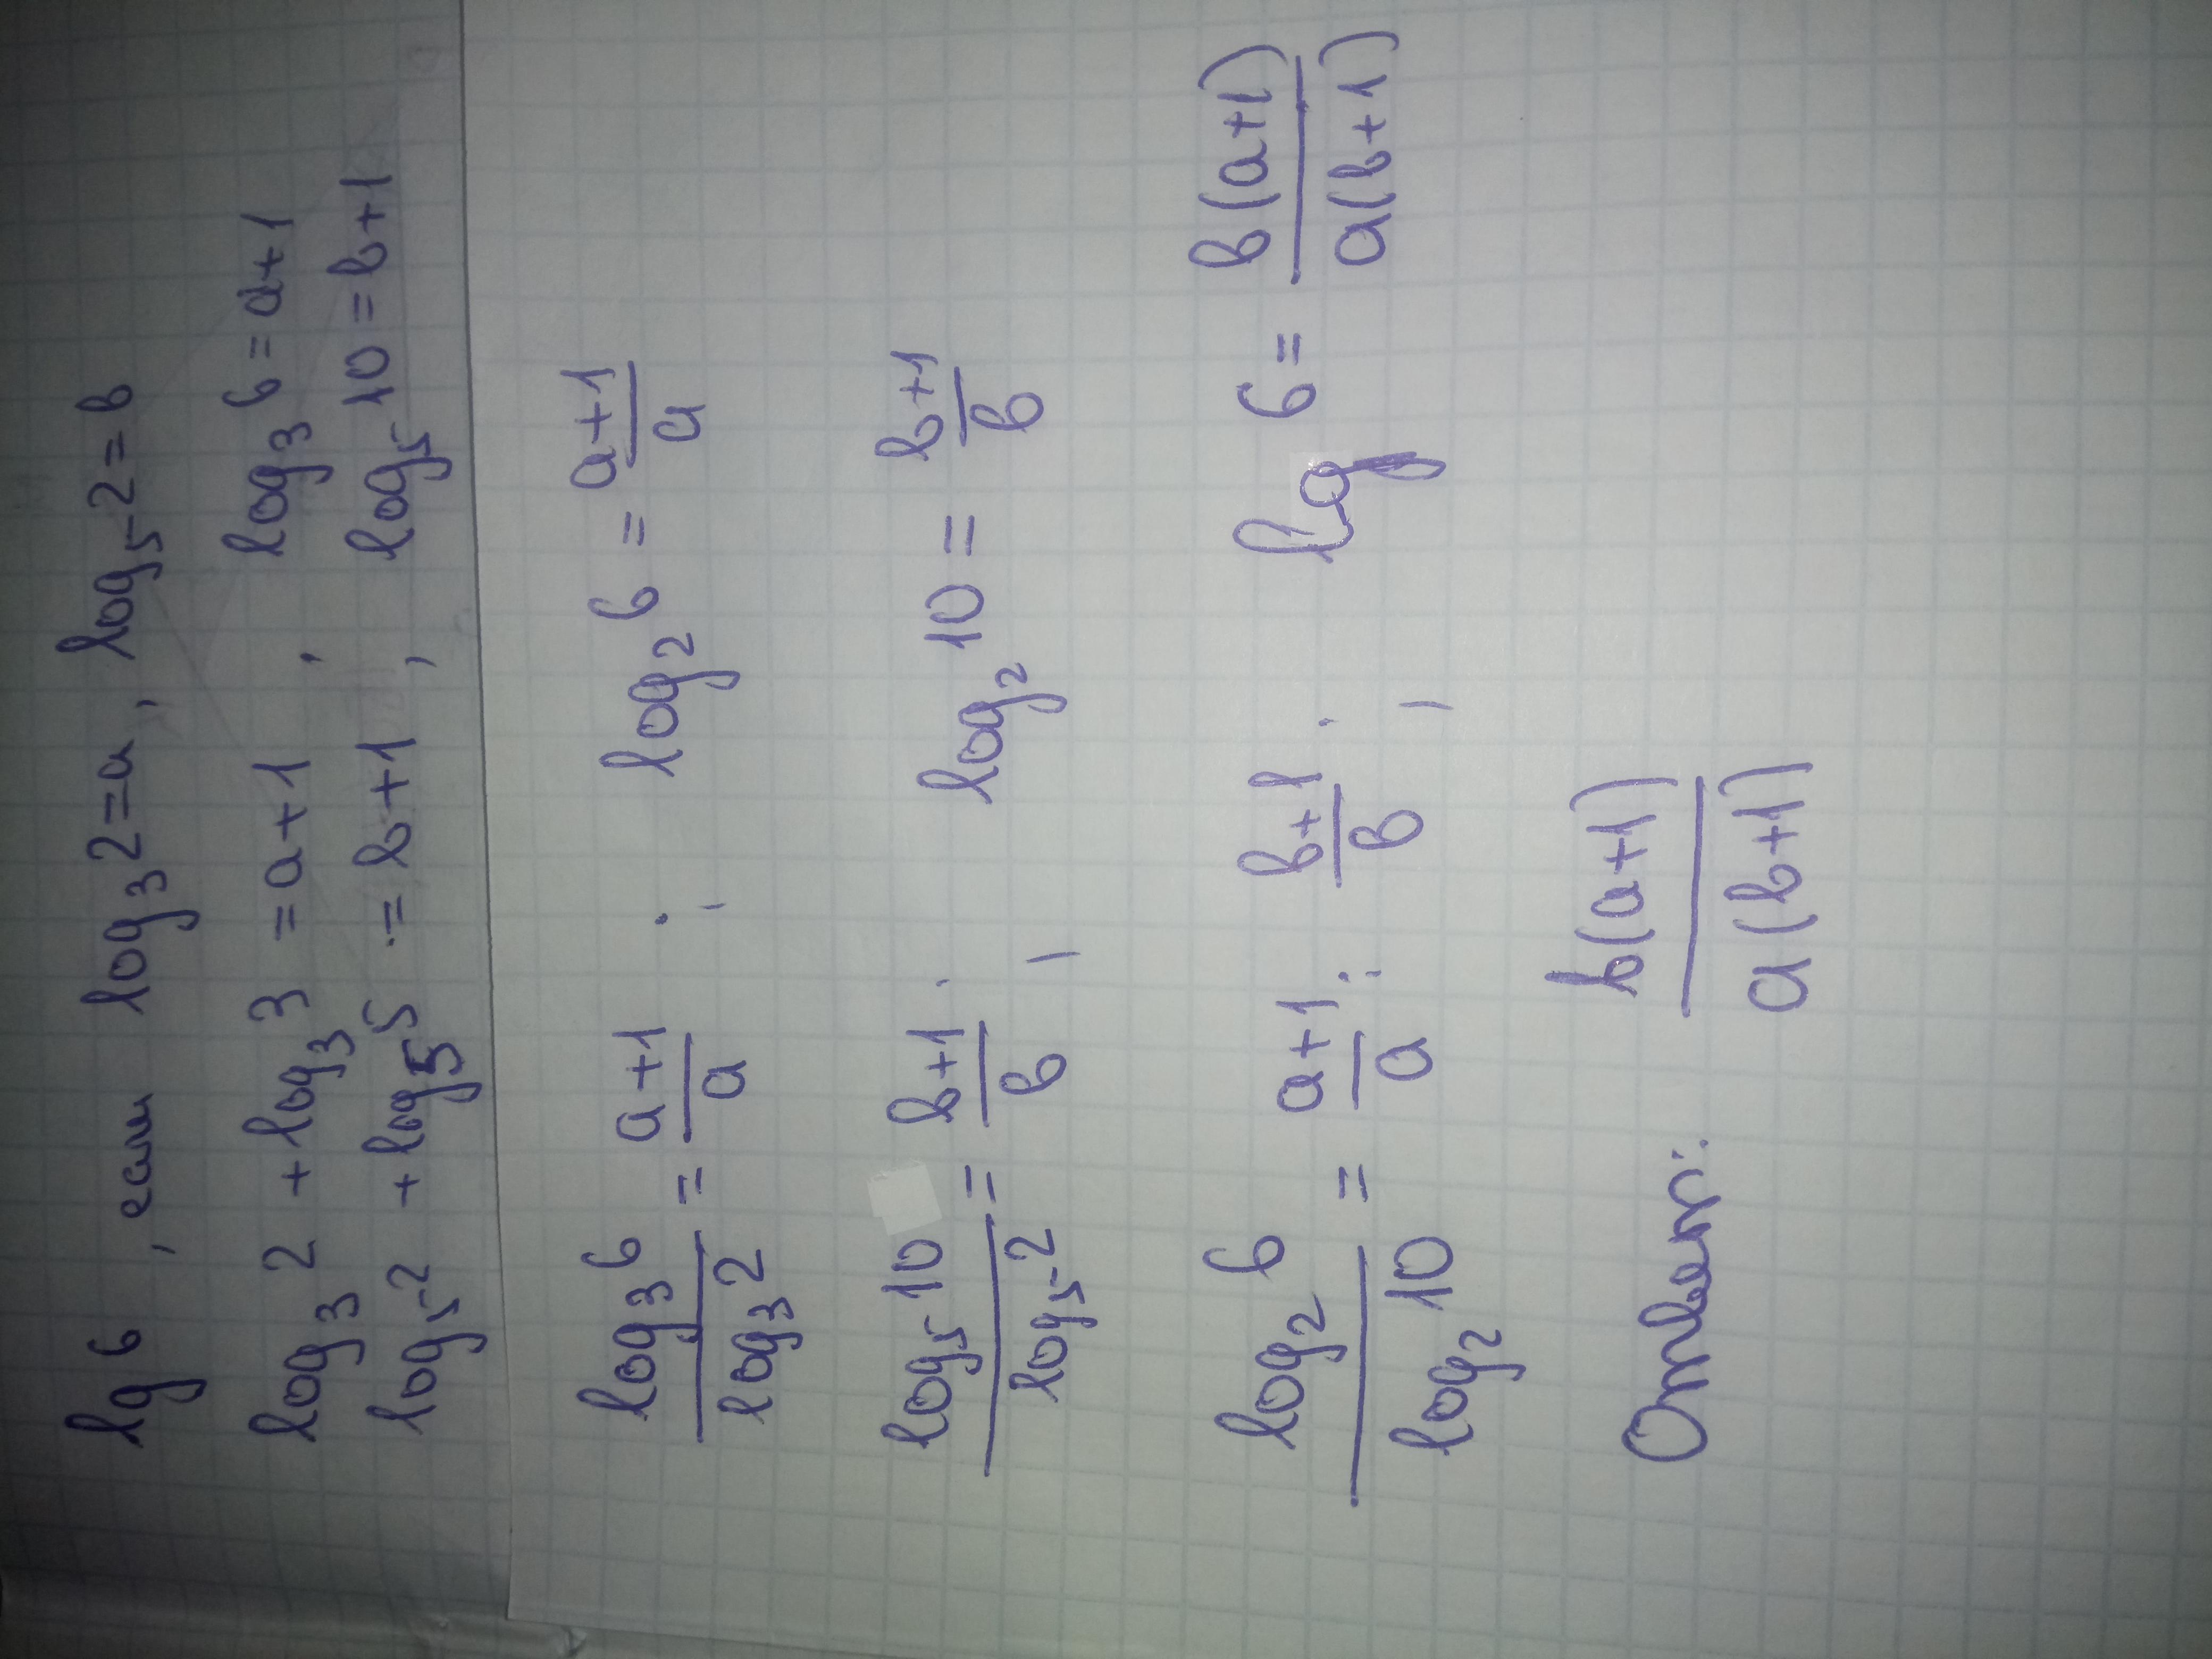 lg 6 , если log₃2=a, log₅2=b
log₃2 +log₃3 =a+1 ; log₃6=a+1
log₅2 +log₅5 = b+1 , log₅10=b+1
log₃6/log₃2 = (a+1)/a ; log₂6 = (a+1)/a
log₅10/log₅2 = (b+1)/b ; log₂10 = (b+1)/b
log₂6/log₂10 = (a+1)/a : (b+1)/b ; lg 6 = b(a+1)/a(b+1)
Ответ: b(a+1)/a(b+1)